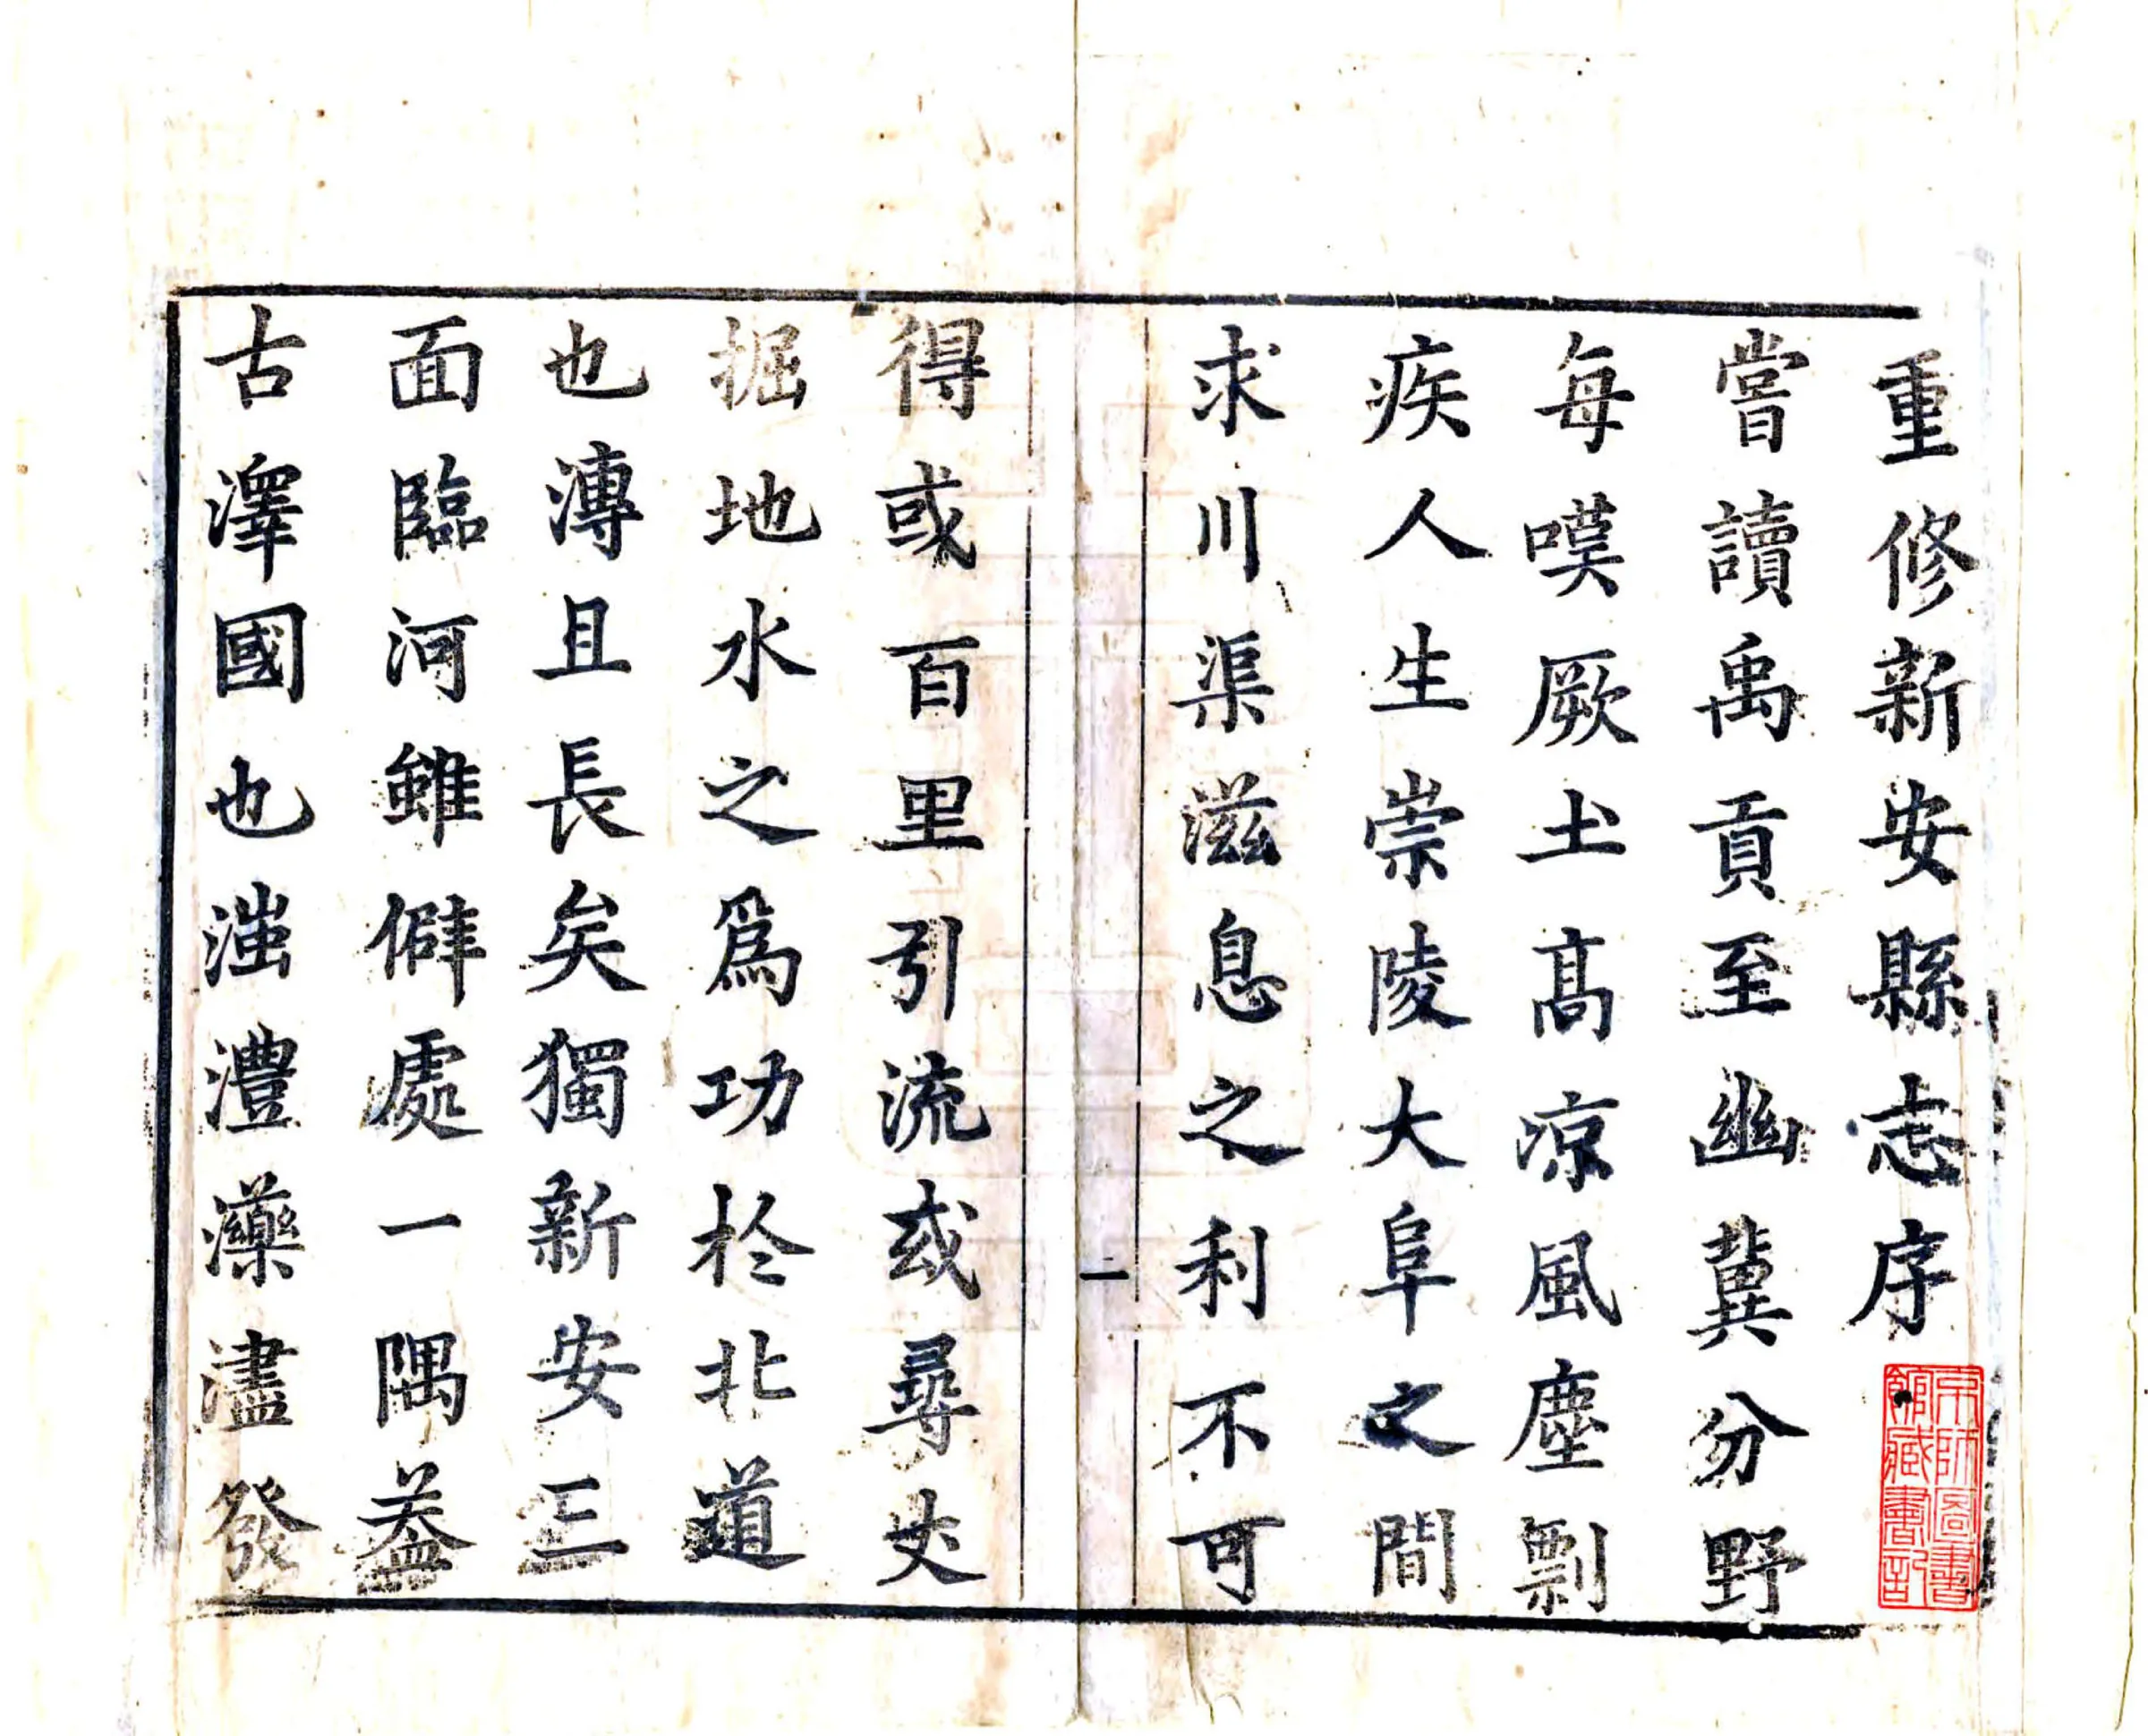 重修新安縣志序
嘗讀禹貢至幽冀分野
每嘆厥土高凉風塵剽
疾人生崇陵大阜之間
求川渠滋息之利不可
一
得或百里引流或尋丈
掘地水之爲功於北道
也溥且長矣獨新安三
面臨河雖僻處一隅葢
古澤國也滍澧藥濜發
京師圖書
館藏書記